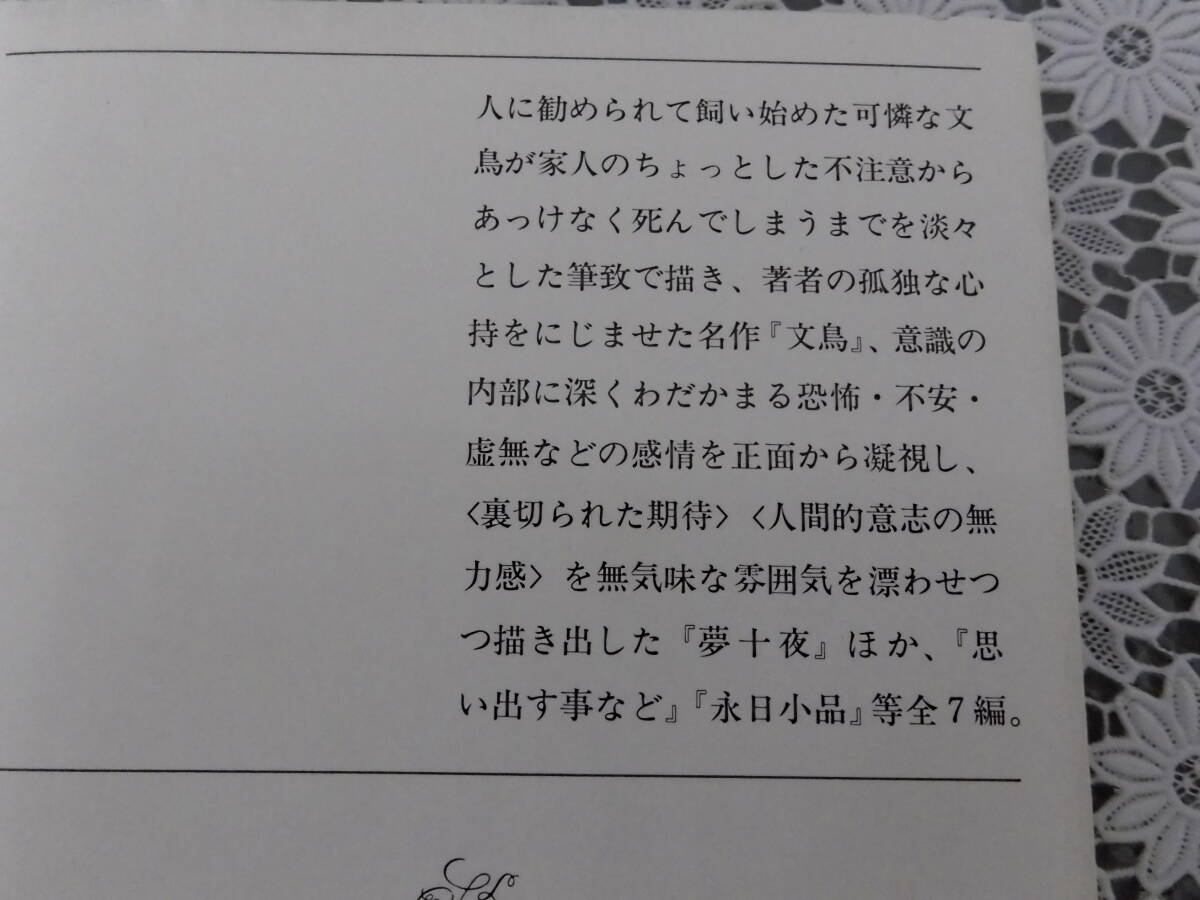 人に勧められて飼い始めた可憐な文
鳥が家人のちょっとした不注意から
あっけなく死んでしまうまでを淡々
とした筆致で描き、著者の孤独な心
持をにじませた名作『文鳥』、意識の
内部に深くわだかまる恐怖・不安・
虚無などの感情を正面から凝視し、
〈裏切られた期待〉〈人間的意志の無
力感〉を無気味な雰囲気を漂わせつ
つ描き出した『夢十夜』ほか、『思
い出す事など』『永日小品』等全7編。